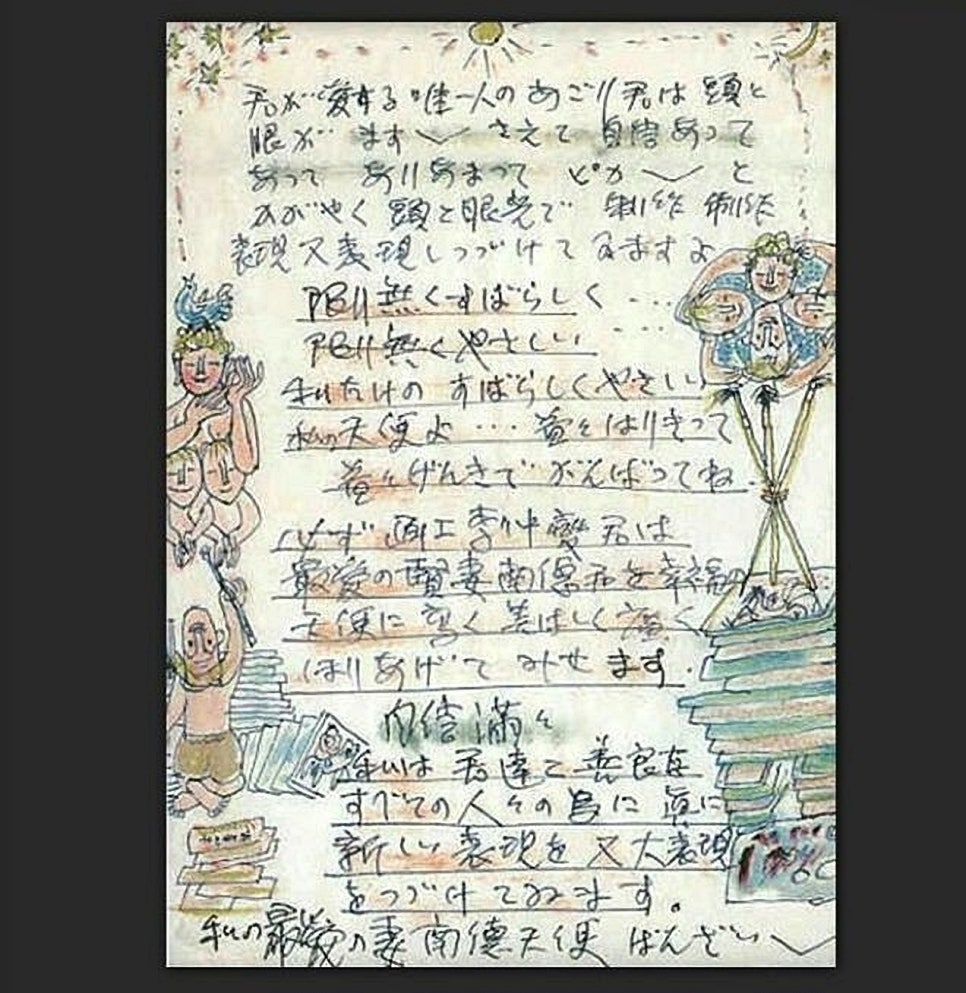 君が愛する唯一人のあごり君は頭と
眼が ます〱 さえて 自信あって
あって ありあまって ピカ〱 と
かがやく 頭と眼光で 制作 制作
表現又表現しつづけてゐますよ
限り無くすばらしく ・・・
限り無くやさしい ・・・
私だけの すばらしくやさしい
私の天使よ ・・・ 益々はりきって
益々げんきで がんばってね.
必ず 画工李仲燮君は
最愛の賢妻南德君を幸福の
天使に 高く 美はしく 広く
ほりあげて みせ ます.
自信満々
私は 君達と 善良な
すべての人々の為に 真に
新しい 表現を 又 大表現
をつづけてゐます。
私の最愛の妻 南德天使 ばんざい〱